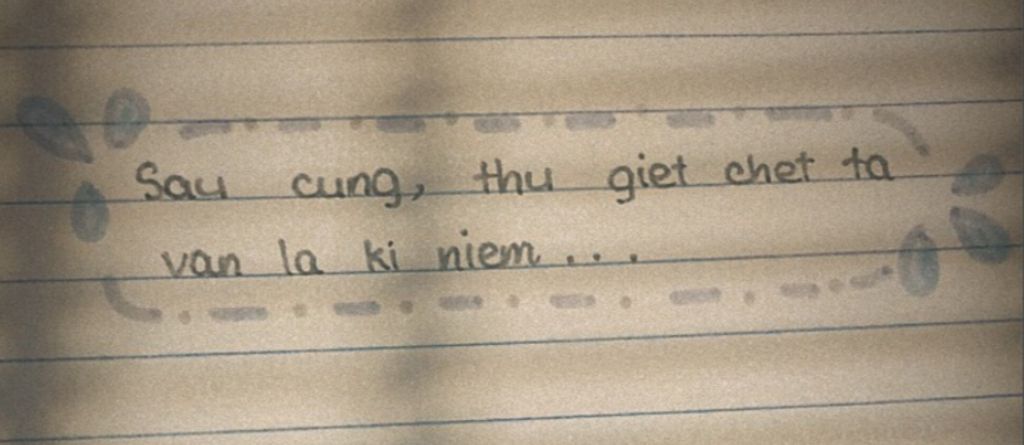 Sau cung, thu giet chet ta
van la ki niem...